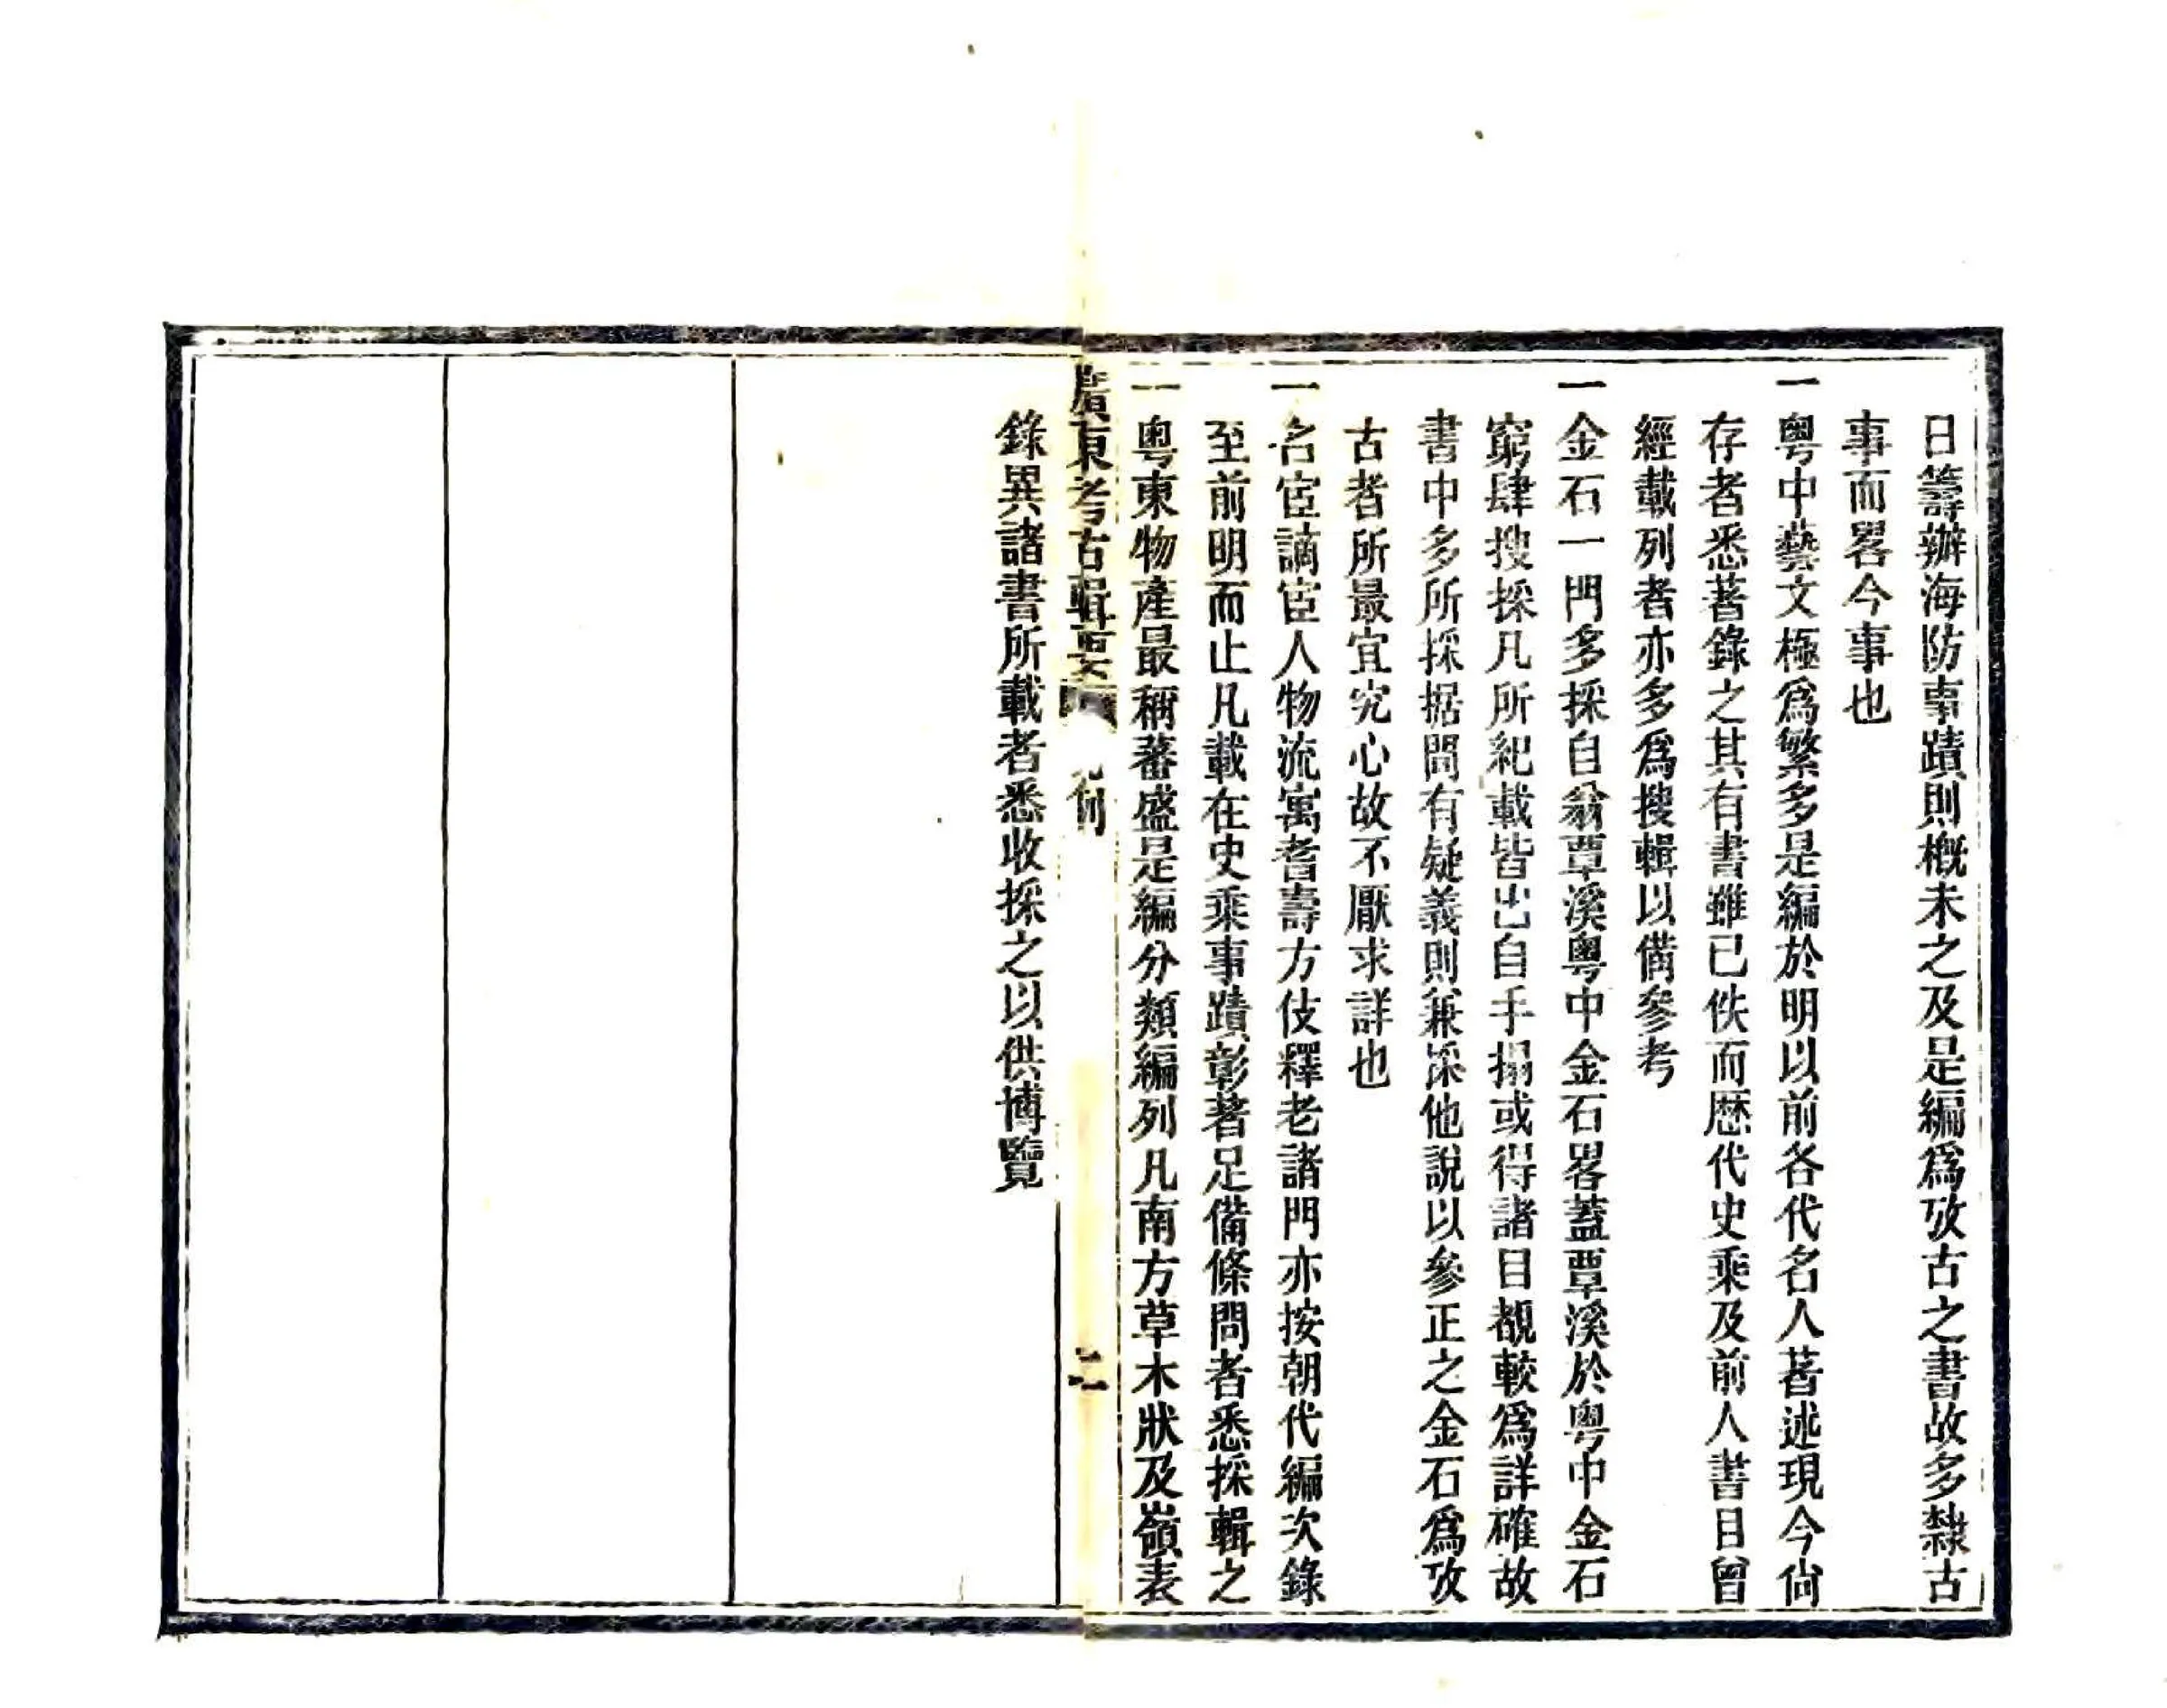 日籌辦海防事蹟則概未之及是編爲攷古之書故多隸古
事而畧今事也
一粤中藝文極爲繁多是編於明以前各代名人著述現今尙
存者悉著錄之其有書雖已佚而歴代史乘及前人書目曾
經載列者亦多爲搜輯以備參考
一金石一門多採自翁覃溪粤中金石畧蓋覃溪於粤中金石
窮肆搜採凡所紀載皆出自手搨或得諸目覩較爲詳確故
書中多所採据間有疑義則兼採他說以參正之金石爲攷
古者所最宜究心故不厭求詳也
一名宦謫宦人物流寓耆壽方伎釋老諸門亦按朝代編次錄
至前明而止凡載在史乘事蹟彰著足備條問者悉採輯之
一粤東物產最稱蕃盛是編分類編列凡南方草木狀及嶺表
廣東考古輯要 凡例 二
錄異諸書所載者悉收採之以供博覽